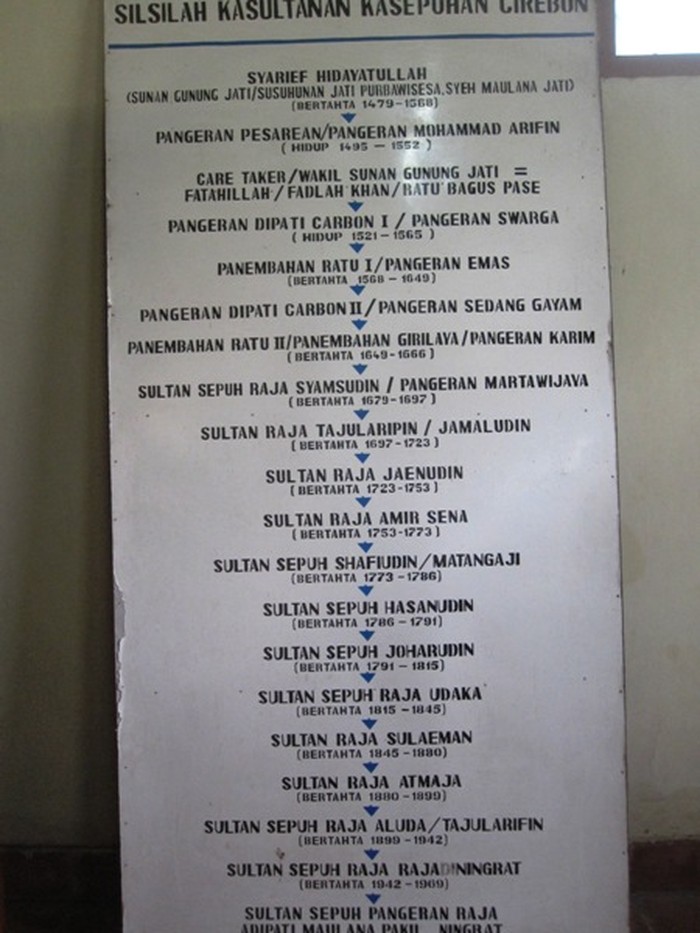 SILSILAH KASULTANAN KASEPUHAN CIREBON
SYARIEF HIDAYATULLAH
(SUNAN GUNUNG JATI/SUSUHUNAN JATI PURBAWISESA,SYEH MAULANA JATI)
(BERTAHTA 1479-1568)
PANGERAN PESAREAN/PANGERAN MOHAMMAD ARIFIN
( HIDUP 1495 - 1552 )
CARE TAKER/WAKIL SUNAN GUNUNG JATI =
FATAHILLAH/FADLAH KHAN/RATU BAGUS PASE
PANGERAN DIPATI CARBON I / PANGERAN SWARGA
( HIDUP 1521-1565 )
PANEMBAHAN RATU I/PANGERAN EMAS
(BERTAHTA 1568 - 1649)
PANGERAN DIPATI CARBON II/PANGERAN SEDANG GAYAM
PANEMBAHAN RATU II/PANEMBAHAN GIRILAYA/PANGERAN KARIM
(BERTAHTA 1649-1666)
SULTAN SEPUH RAJA SYAMSUDIN / PANGERAN MARTAWIJAYA
(BERTAHTA 1679-1697)
SULTAN RAJA TAJULARIPIN / JAMALUDIN
(BERTAHTA 1697-1723)
SULTAN RAJA JAENUDIN
(BERTAHTA 1723-1753)
SULTAN RAJA AMIR SENA
(BERTAHTA 1753-1773)
SULTAN SEPUH SHAFIUDIN/MATANGAJI
(BERTAHTA 1773-1786)
SULTAN SEPUH HASANUDIN
(BERTAHTA 1786 - 1791)
SULTAN SEPUH JOHARUDIN
(BERTAHTA 1791 - 1815)
SULTAN SEPUH RAJA UDAKA
(BERTAHTA 1815 - 1845)
SULTAN RAJA SULAEMAN
(BERTAHTA 1845 - 1880)
SULTAN RAJA ATMAJA
(BERTAHTA 1880 - 1899)
SULTAN SEPUH RAJA ALUDA/TAJULARIFIN
(BERTAHTA 1899 - 1942)
SULTAN SEPUH RAJA RAJADININGRAT
(BERTAHTA 1942 - 1969)
SULTAN SEPUH PANGERAN RAJA
ADIPATI MAULANA PAKU NINGRAT